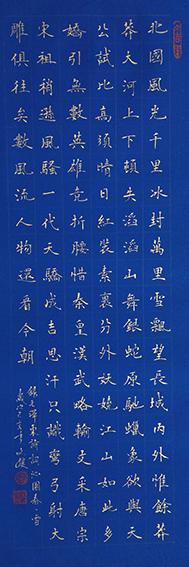 北國風光千里冰封萬里雪飄望長城内外惟餘莽
莽大河上下頓失滔滔山舞銀蛇原馳蠟象欲與天
公試比高須晴日紅裝素裹分外妖嬈江山如此多
嬌引無數英雄競折腰惜秦皇漢武略輸文采唐宗
宋祖稍遜風騷一代天驕成吉思汗只識彎弓射大
雕俱往矣數風流人物還看今朝
錄毛澤東詩詞沁園春雪